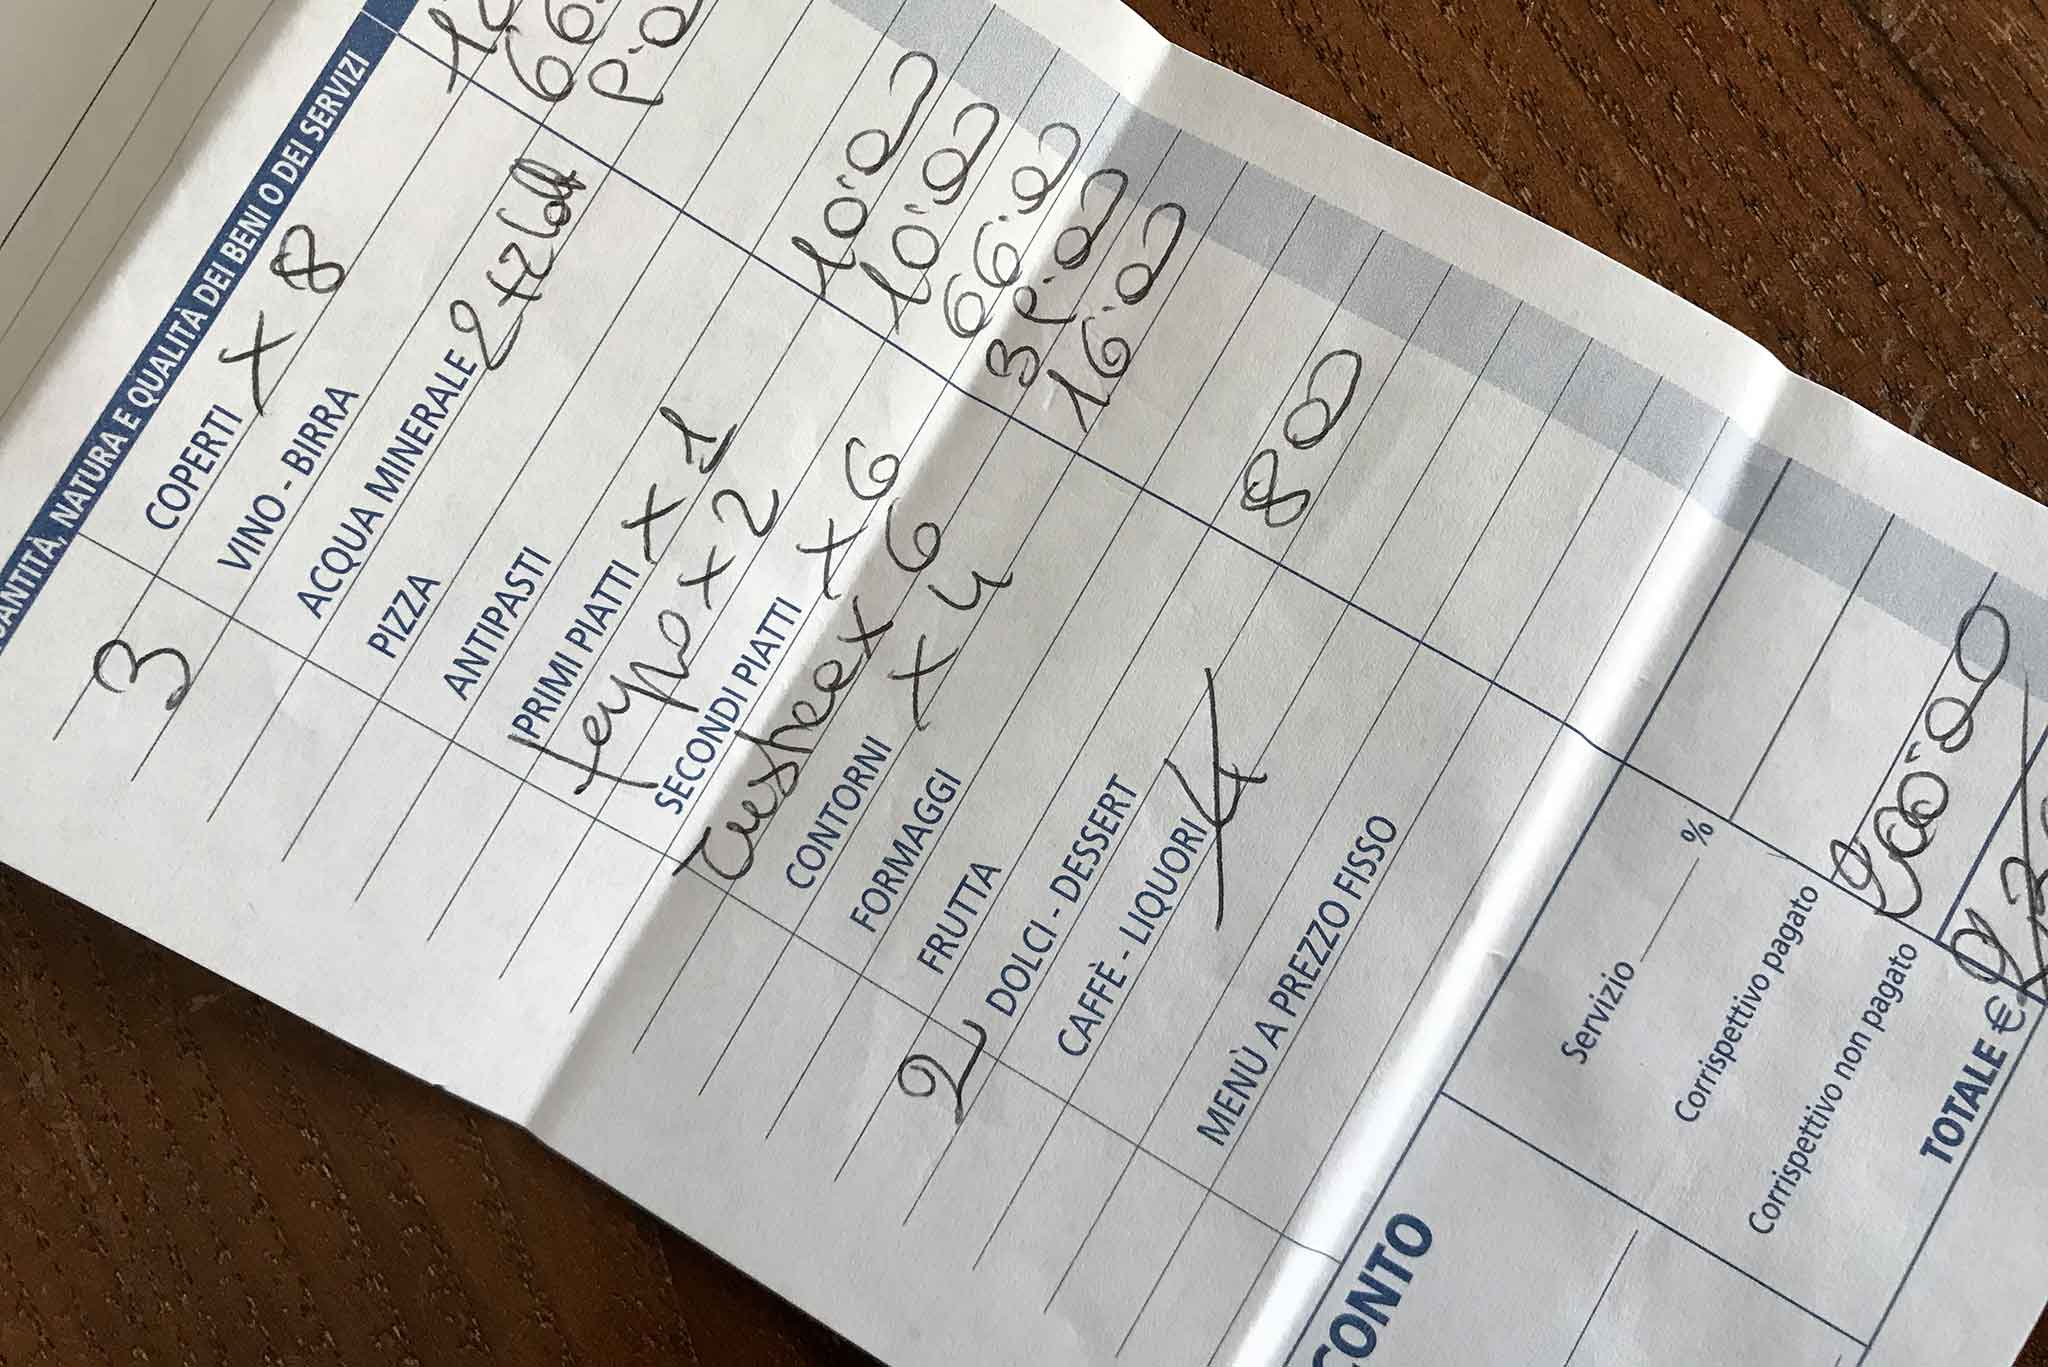 QUANTITÀ, NATURA E QUALITÀ DEI BENI O DEI SERVIZI
3 COPERTI X 8
VINO - BIRRA 66.
ACQUA MINERALE 2+2
PIZZA
ANTIPASTI
PRIMI PIATTI X 1 10.00
x 2 10.00
SECONDI PIATTI X 6 66.00
x 6
CONTORNI X 4 16.00
FORMAGGI
FRUTTA
2 DOLCI - DESSERT 8 00
CAFFÈ - LIQUORI 4
MENÙ A PREZZO FISSO
CONTO
Servizio %
Corrispettivo pagato
Corrispettivo non pagato 200.00
TOTALE €